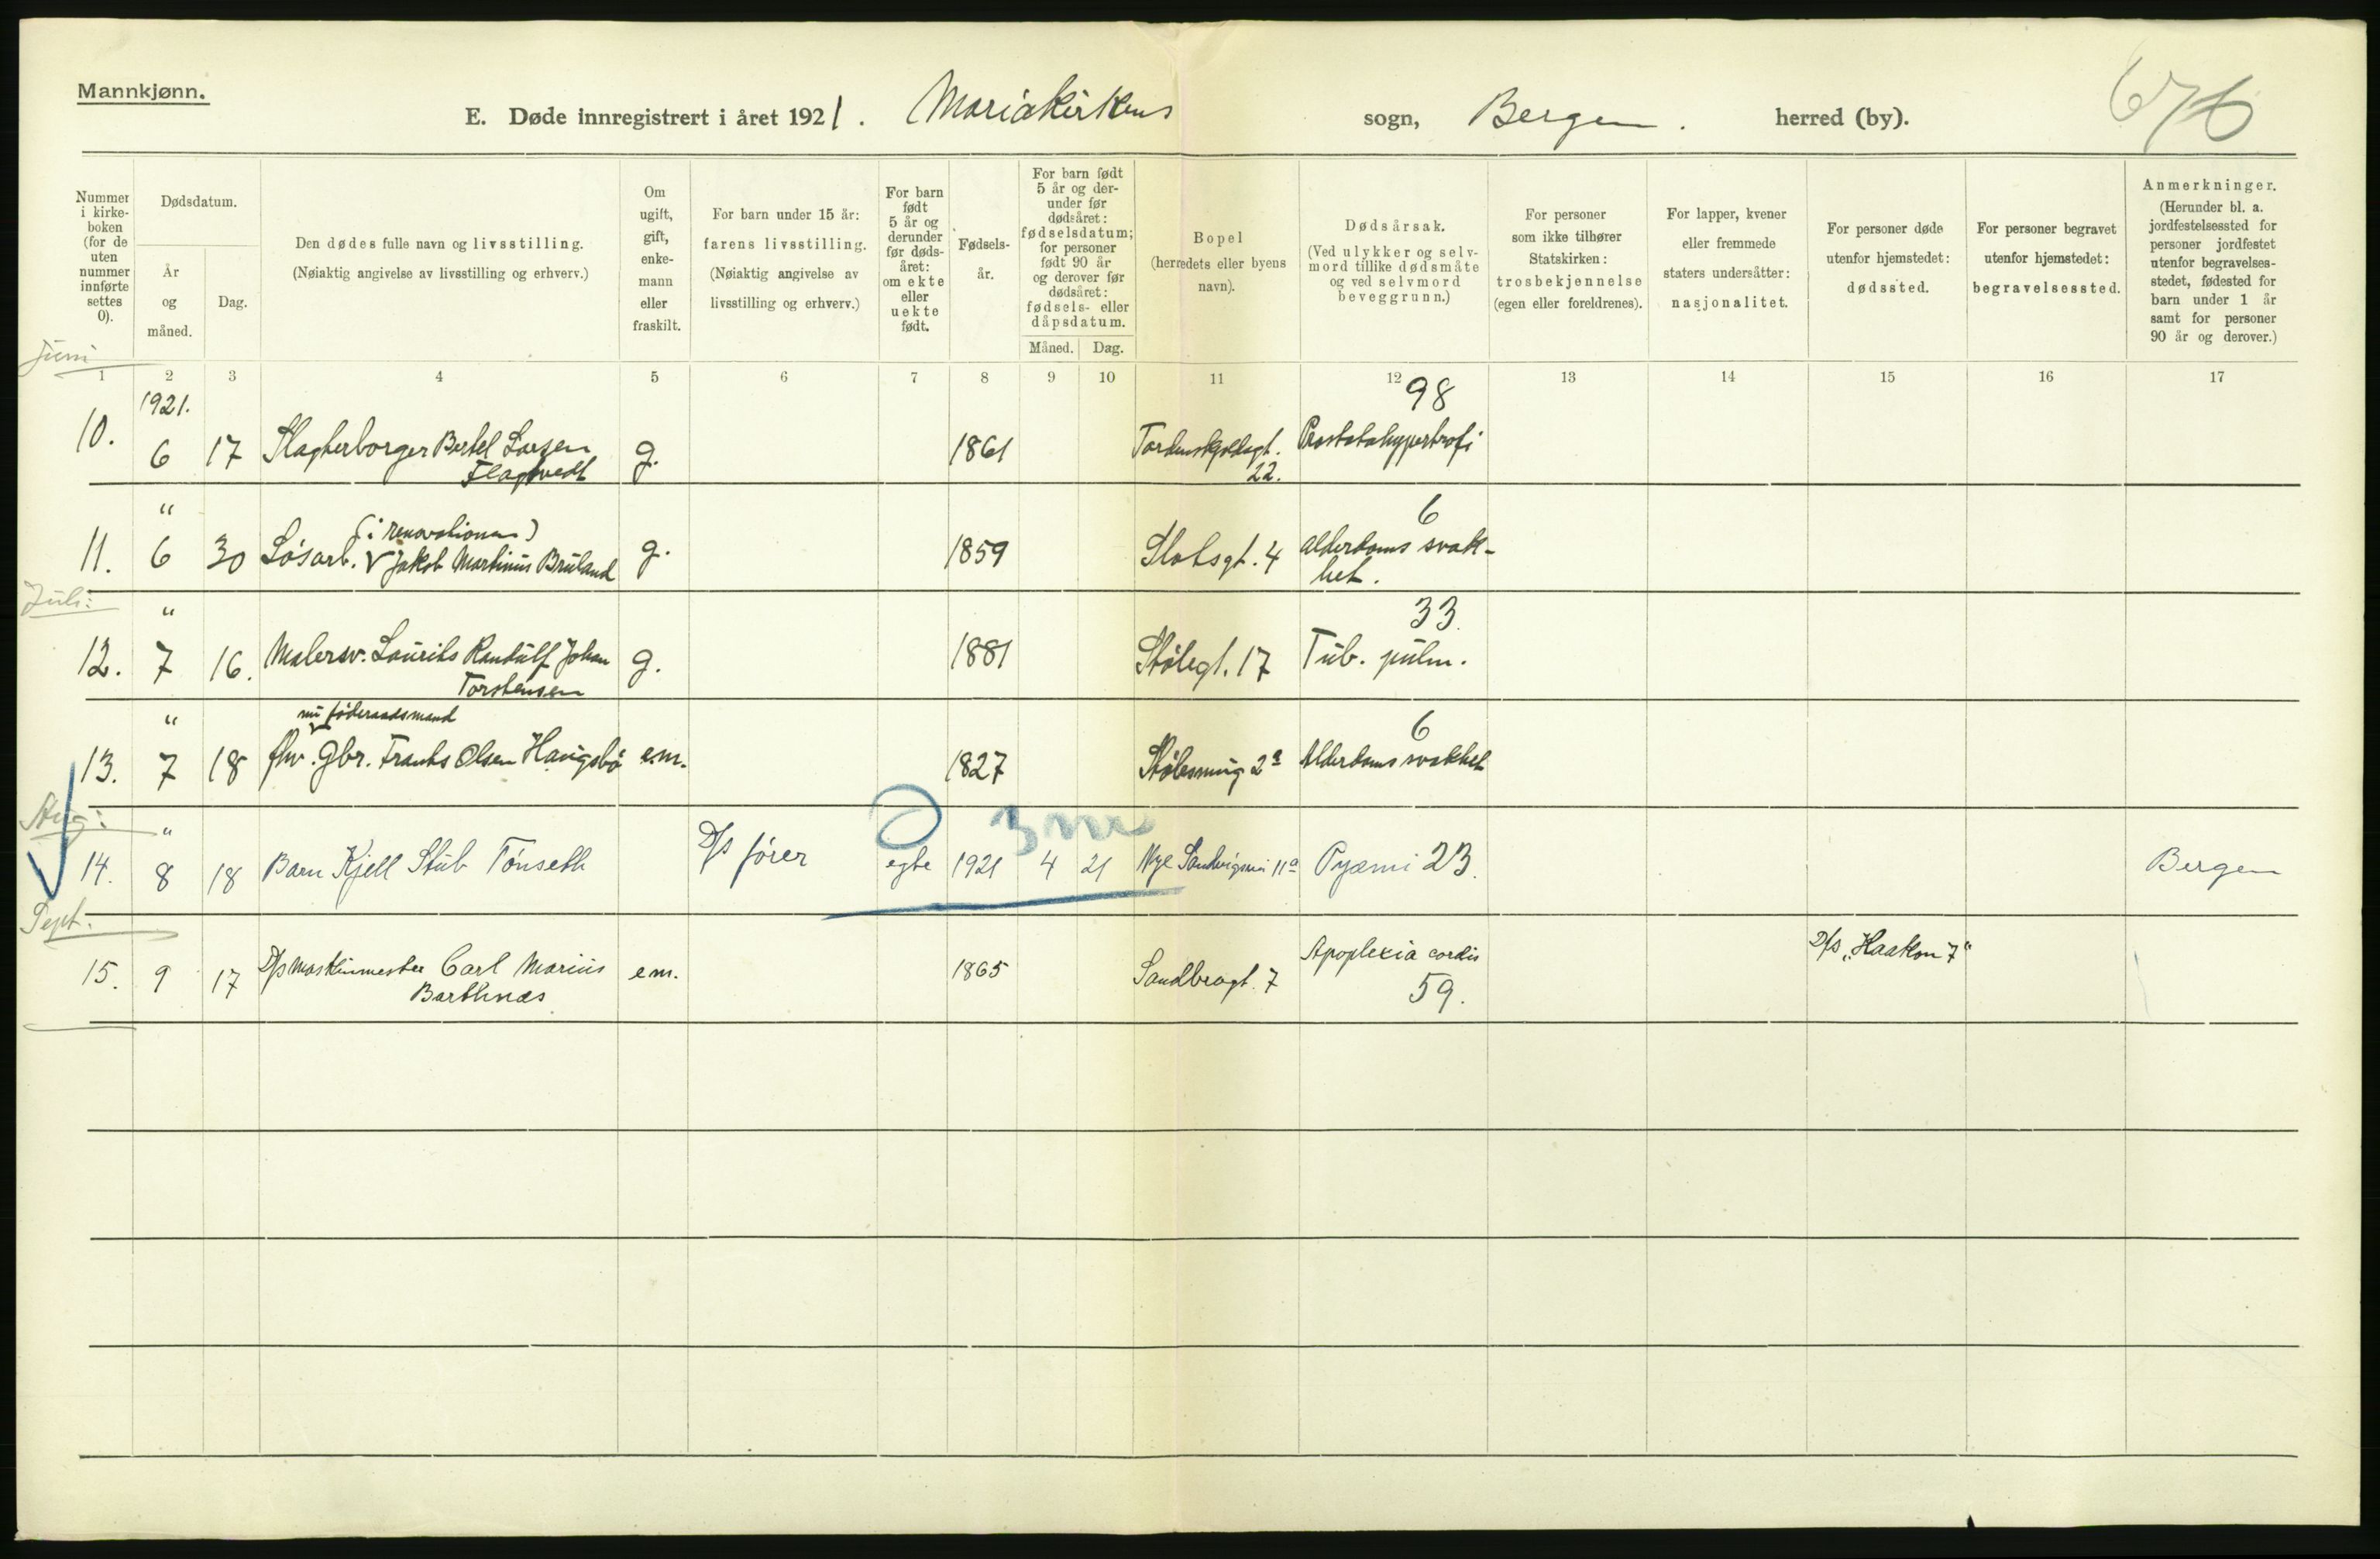 Mannkjønn.
E. Døde innregistrert i året 1921. Mariakirkens sogn, Bergen. herred (by).
676
Nummer i kirke-boken (for de uten nummer innførte settes 0).
Dødsdatum.
År og måned.
Dag.
Den dødes fulle navn og livsstilling.
(Nøiaktig angivelse av livsstilling og erhverv.)
Om ugift, gift, enke-mann eller fraskilt.
For barn under 15 år: farens livsstilling.
(Nøiaktig angivelse av livsstilling og erhverv.)
For barn født 5 år og derunder før døds-året: om ekte eller uekte født.
Fødsels-år.
For barn født 5 år og der-under før dødsåret: fødselsdatum; for personer født 90 år og derover før dødsåret: fødsels- eller dåpsdatum.
Måned. Dag.
Bopel
(herredets eller byens navn).
Dødsårsak.
(Ved ulykker og selv-mord tillike dødsmåte og ved selvmord beveggrunn.)
For personer som ikke tilhører Statskirken: trosbekjennelse (egen eller foreldrenes).
For lapper, kvener eller fremmede staters undersåtter: nasjonalitet.
For personer døde utenfor hjemstedet: dødssted.
For personer begravet utenfor hjemstedet: begravelsessted.
Anmerkninger.
(Herunder bl. a. jordfestelsessted for personer jordfestet utenfor begravelses-stedet, fødested for barn under 1 år samt for personer 90 år og derover.)
Juni
1 2 3 4 5 6 7 8 9 10 11 12 13 14 15 16 17
1921. 98
10. 6 17 Slagterborger Bertel Larsen g. 1861 Tordenskjoldsgt. Prostatahypertrofi
Flaptvedt 22.
" (i renovationen) 6
11. 6 30 Løsarb. Jakob Martinus Bruland g. 1859 Slotsgt. 4 Alderdoms svak-
het.
Juli:
" 33.
12. 7 16. Malersv. Laurits Randulf Johan g. 1881 Stølegt. 17 Tub. pulm.
Torstensen
" nu føderaadsmand 6
13. 7 18 fhv. Gbr. Frants Olsen Haugsbø e.m. 1827 Stølesmug 2a Alderdomssvakhet
Aug: " 3 mn
14. 8 18 Barn Kjell Stub Tønseth D/s fører egte 1921 4 21 Nye Sandvigsvei 11a Pyæmi 23. Bergen
Sept.
15. 9 17 D/s Maskinmester Carl Marius e.m. 1865 Sandbrogt. 7 Apoplexia cordis D/s „Haakon 7"
Barthnæs 59.